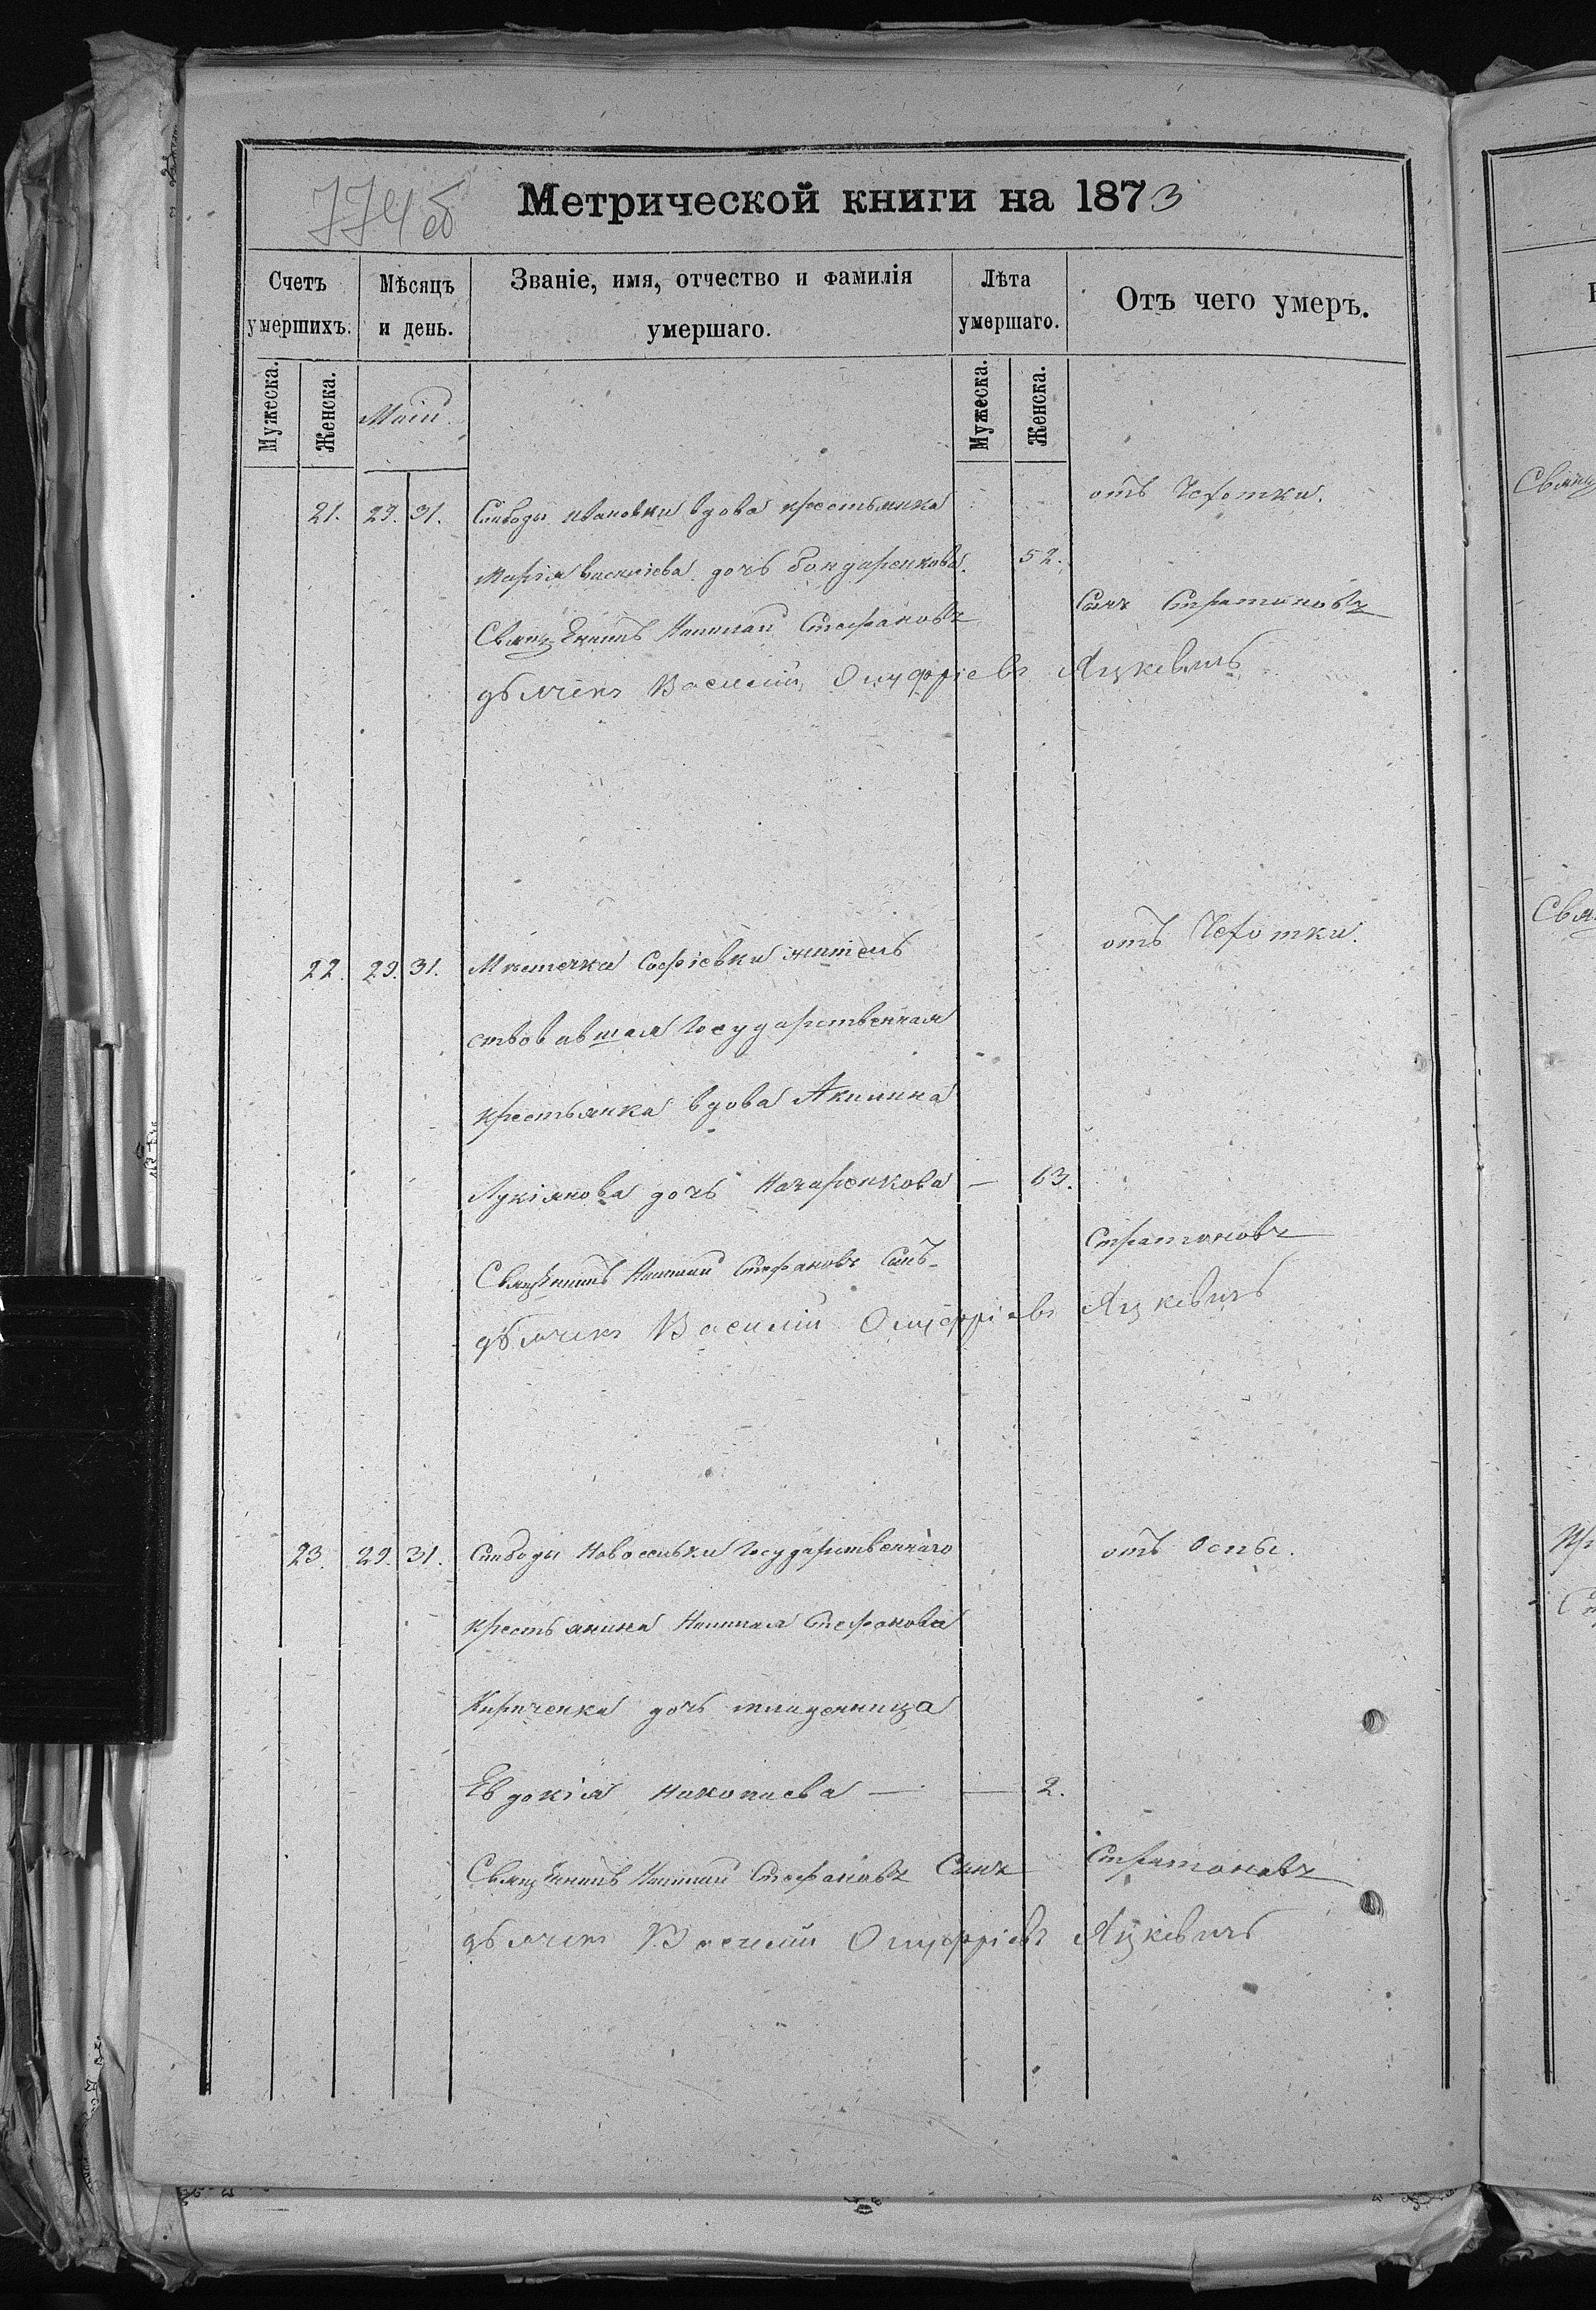 774об
Метрической книги на 1873
Счетъ умершихъ. Мѣсяцъ и день. Званіе, имя, отчество и фамилія умершаго. Лѣта умершаго. Отъ чего умеръ.
Мужеска. Женска. Маій Мужеска. Женска.
21. 29. 31. Слободы Ивановки вдова крестьянка отъ Чехотки.
Марія Василіева дочь Бондаренкова. 52.
Священникъ Николай Стефановъ Сынъ Стратоновъ
дьячекъ Василій Онуфріевъ Яцкевичъ
22. 29. 31. Мѣстечка Софіевки житель отъ Чехотки.
ствовавшая Государственная
крестьянка вдова Акилина
Лукіянова дочь Назаренкова — 63.
Священникъ Николай Стефановъ Сынъ Стратоновъ
дьячекъ Василій Онуфріевъ Яцкевичъ
23. 29. 31. Слободы Новоселовки Государственнаго отъ Оспы.
крестьянина Николая Стефанова
Кириченка дочь младенница
Евдокія Николаева — — 2.
Священникъ Николай Стефановъ Сынъ Стратоновъ
дьячекъ Василій Онуфріевъ Яцкевичъ